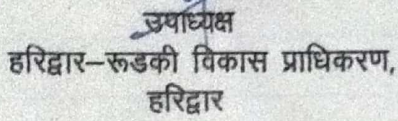 उपाध्यक्ष
हरिद्वार–रूडकी विकास प्राधिकरण,
हरिद्वार